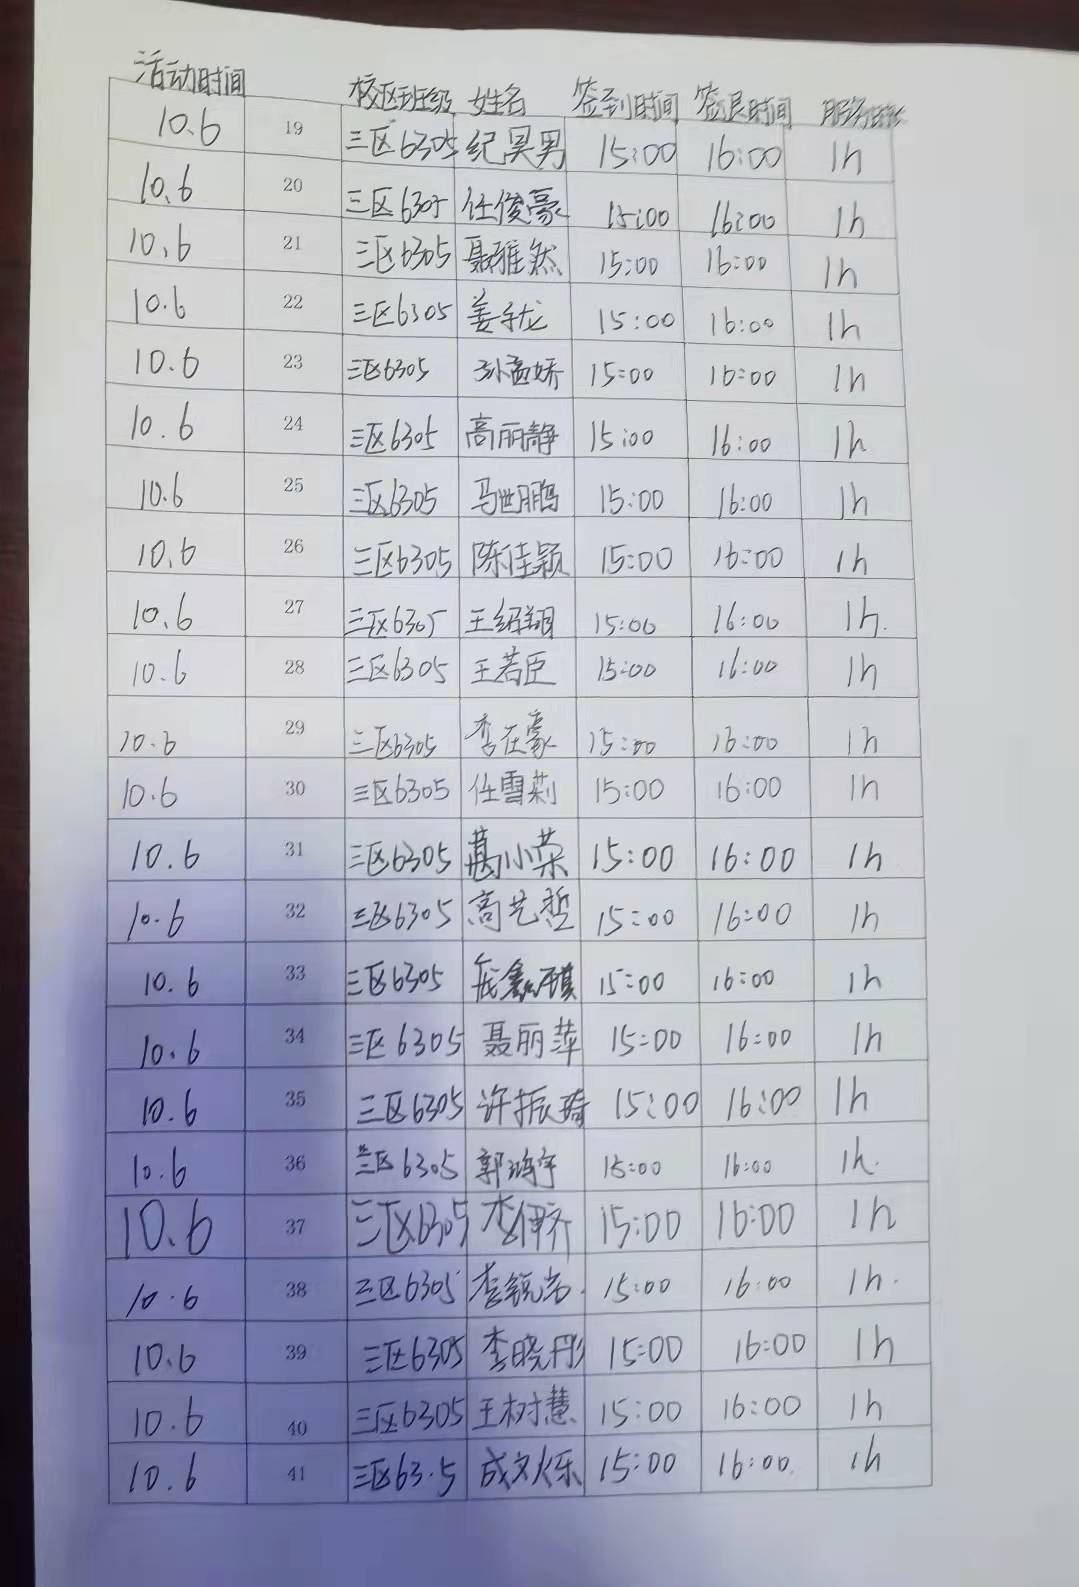 活动时间 校区班级 姓名 签到时间 签退时间 服务时长
10.6 19 三区6305 纪昊男 15:00 16:00 1h
10.6 20 三区6305 任俊豪 15:00 16:00 1h
10.6 21 三区6305 聂雅然 15:00 16:00 1h
10.6 22 三区6305 姜子龙 15:00 16:00 1h
10.6 23 三区6305 孙孟娇 15:00 16:00 1h
10.6 24 三区6305 高丽静 15:00 16:00 1h
10.6 25 三区6305 马世鹏 15:00 16:00 1h
10.6 26 三区6305 陈佳颖 15:00 16:00 1h
10.6 27 三区6305 王绍翔 15:00 16:00 1h.
10.6 28 三区6305 王若臣 15:00 16:00 1h
10.6 29 三区6305 李在豪 15:00 16:00 1h
10.6 30 三区6305 任雪莉 15:00 16:00 1h
10.6 31 三区6305 葛小荣 15:00 16:00 1h
10.6 32 三区6305 高艺哲 15:00 16:00 1h
10.6 33 三区6305 15:00 16:00 1h
10.6 34 三区6305 聂丽萍 15:00 16:00 1h
10.6 35 三区6305 许振琦 15:00 16:00 1h
10.6 36 三区6305 郭鸿宇 15:00 16:00 1h.
10.6 37 三区6305 15:00 16:00 1h
10.6 38 三区6305 15:00 16:00 1h.
10.6 39 三区6305 李晓彤 15:00 16:00 1h
10.6 40 三区6305 王树慧 15:00 16:00 1h
10.6 41 三区63.5 成文烁 15:00 16:00 1h